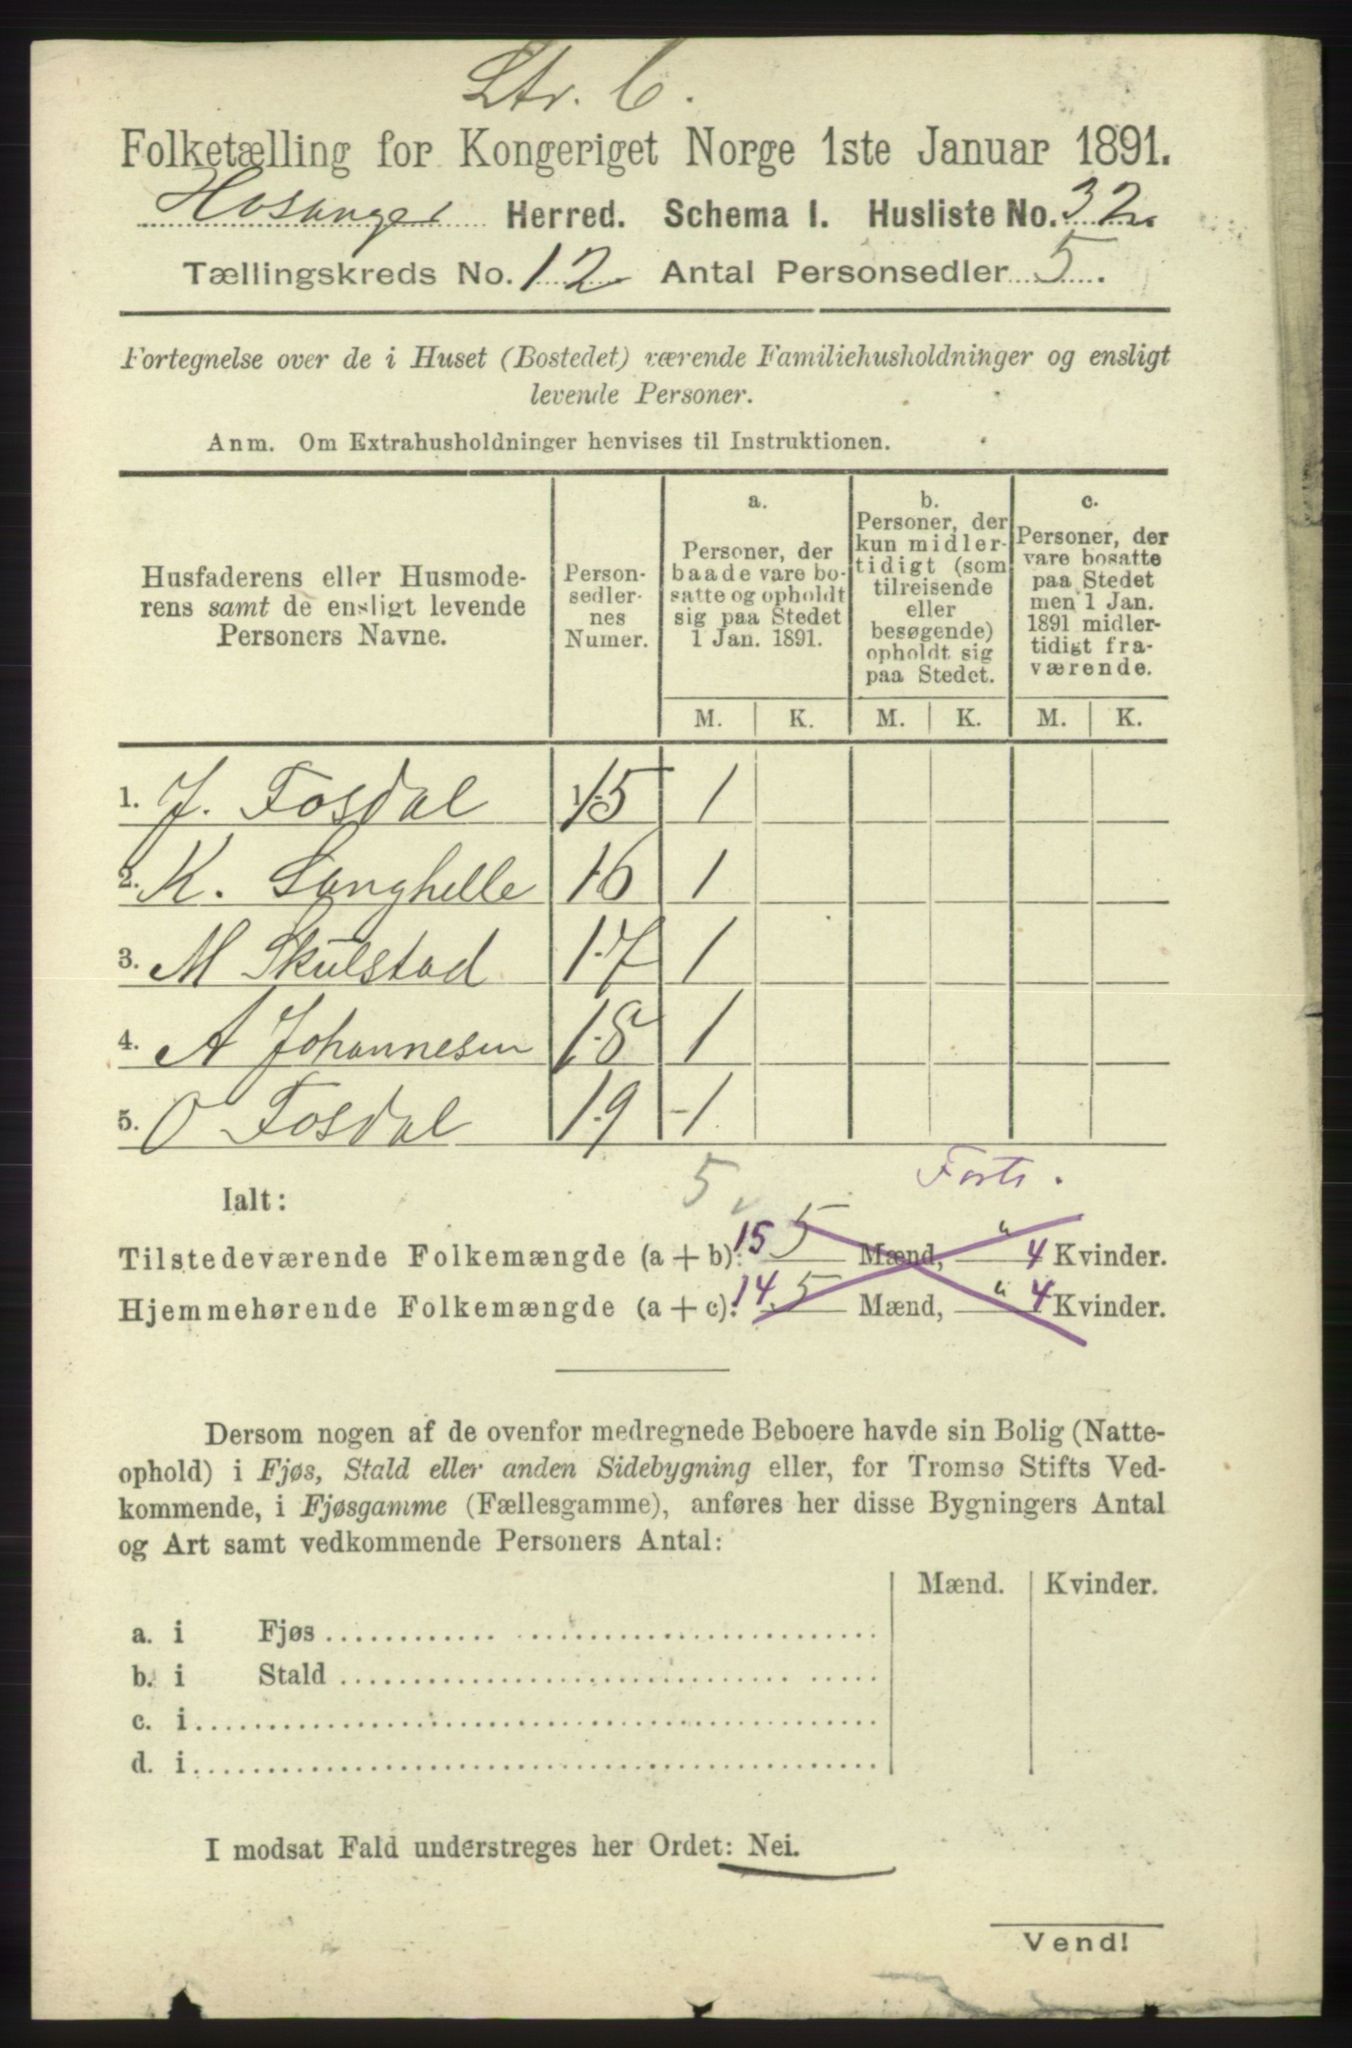 Ltr. C.
Folketælling for Kongeriget Norge 1ste Januar 1891.
Hosanger Herred. Schema I. Husliste No. 32.
Tællingskreds No. 12 Antal Personsedler 5.
Fortegnelse over de i Huset (Bostedet) værende Familiehusholdninger og ensligt
levende Personer.
Anm. Om Extrahusholdninger henvises til Instruktionen.
Husfaderens eller Husmode-
rens samt de ensligt levende
Personers Navne.
Person-
sedler-
nes
Numer.
a.
Personer, der
baade vare bo-
satte og opholdt
sig paa Stedet
1 Jan. 1891.
b.
Personer, der
kun midler-
tidigt (som
tilreisende
eller
besøgende)
opholdt sig
paa Stedet.
c.
Personer, der
vare bosatte
paa Stedet
men 1 Jan.
1891 midler-
tidigt fra-
værende.
M. K. M. K. M. K.
1. J. Fosdal 15 1
2. K. Langhelle 16 1
3. M Skulstad 17 1
4. A Johannesen 18 1
5. O Fosdal 19 1
5 Forts.
Ialt:
Tilstedeværende Folkemængde (a + b): 15 5 Mænd, " 4 Kvinder.
Hjemmehørende Folkemængde (a + c): 14 5 Mænd, " 4 Kvinder.
Dersom nogen af de ovenfor medregnede Beboere havde sin Bolig (Natte-
ophold) i Fjøs, Stald eller anden Sidebygning eller, for Tromsø Stifts Ved-
kommende, i Fjøsgamme (Fællesgamme), anføres her disse Bygningers Antal
og Art samt vedkommende Personers Antal:
Mænd. Kvinder.
a. i Fjøs
b. i Stald
c. i
d. i
I modsat Fald understreges her Ordet: Nei.
Vend!